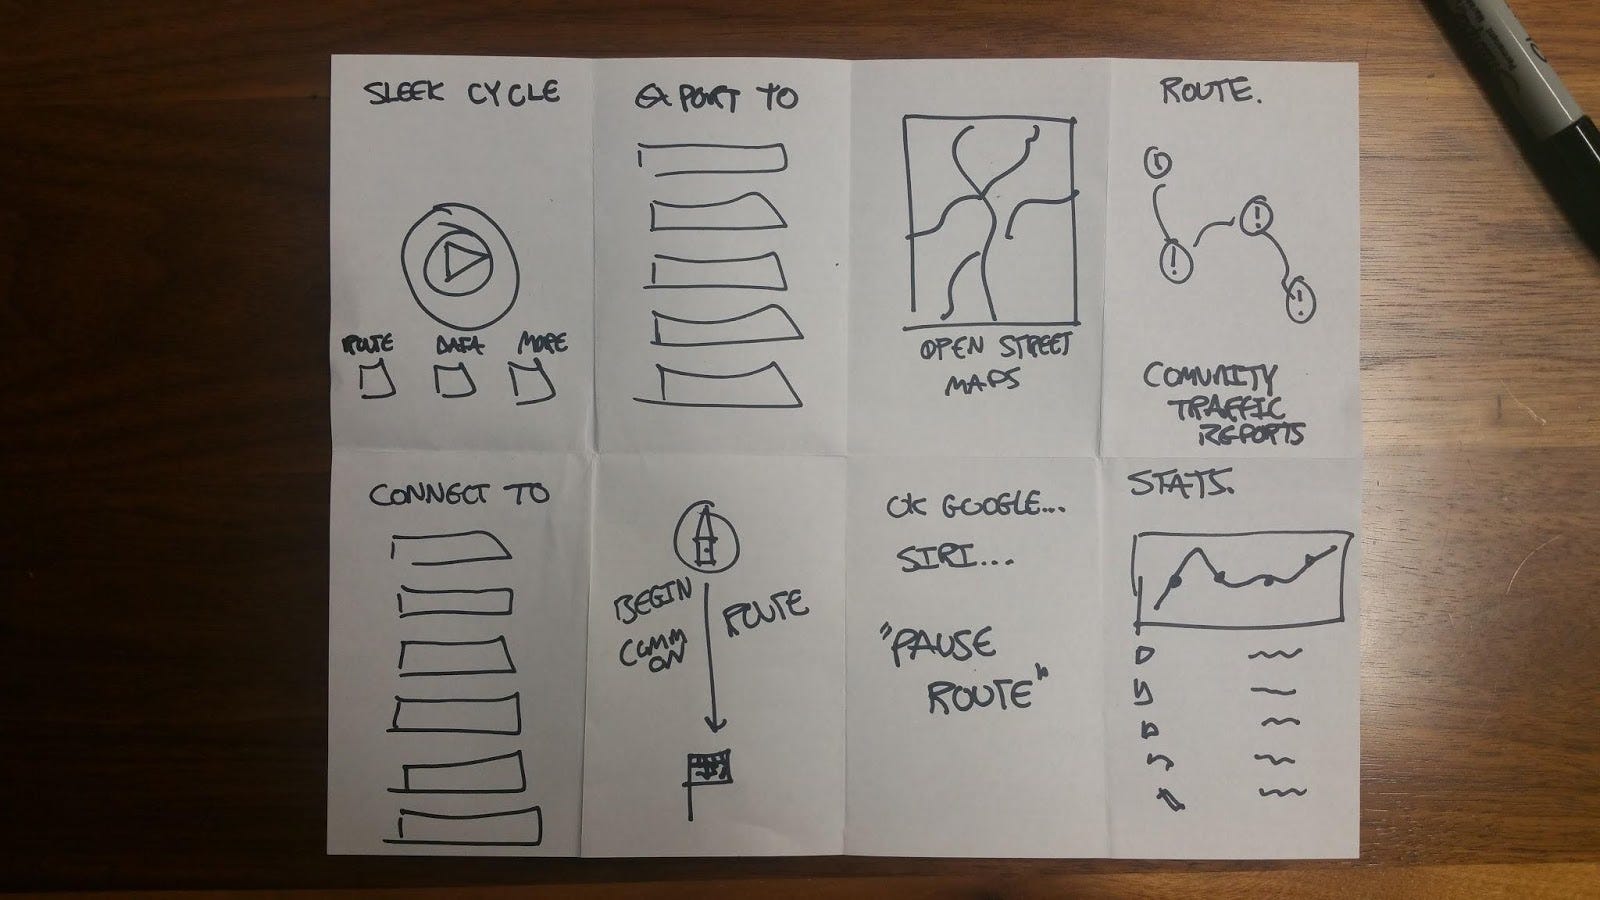 SLEEK CYCLE
ROUTE DATA MORE
EXPORT TO
OPEN STREET
MAPS
ROUTE.
COMUNITY
TRAFFIC
REPORTS
CONNECT TO
BEGIN
COMM
ON
ROUTE
OK GOOGLE...
SIRI...
"PAUSE
ROUTE"
STATS.